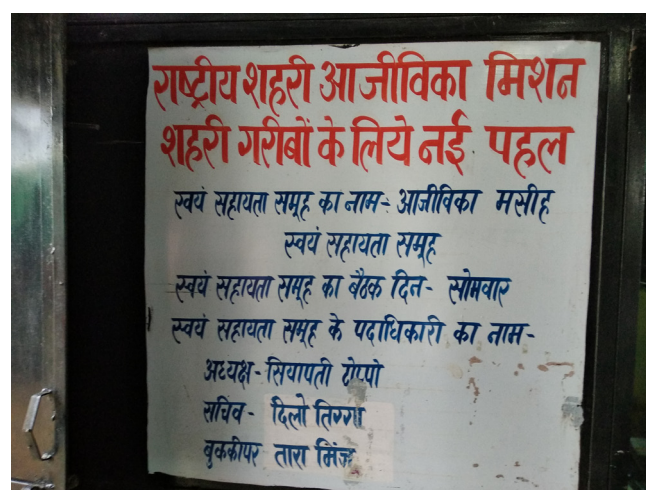 राष्ट्रीय शहरी आजीविका मिशन
शहरी गरीबों के लिये नई पहल
स्वयं सहायता समूह का नाम- आजीविका मसीह
स्वयं सहायता समूह
स्वयं सहायता समूह का बैठक दिन- सोमवार
स्वयं सहायता समूह के पदाधिकारी का नाम-
अध्यक्ष- सियापती टोप्पो
सचिव- दिलो तिग्गा
बुककीपर तारा मिंज